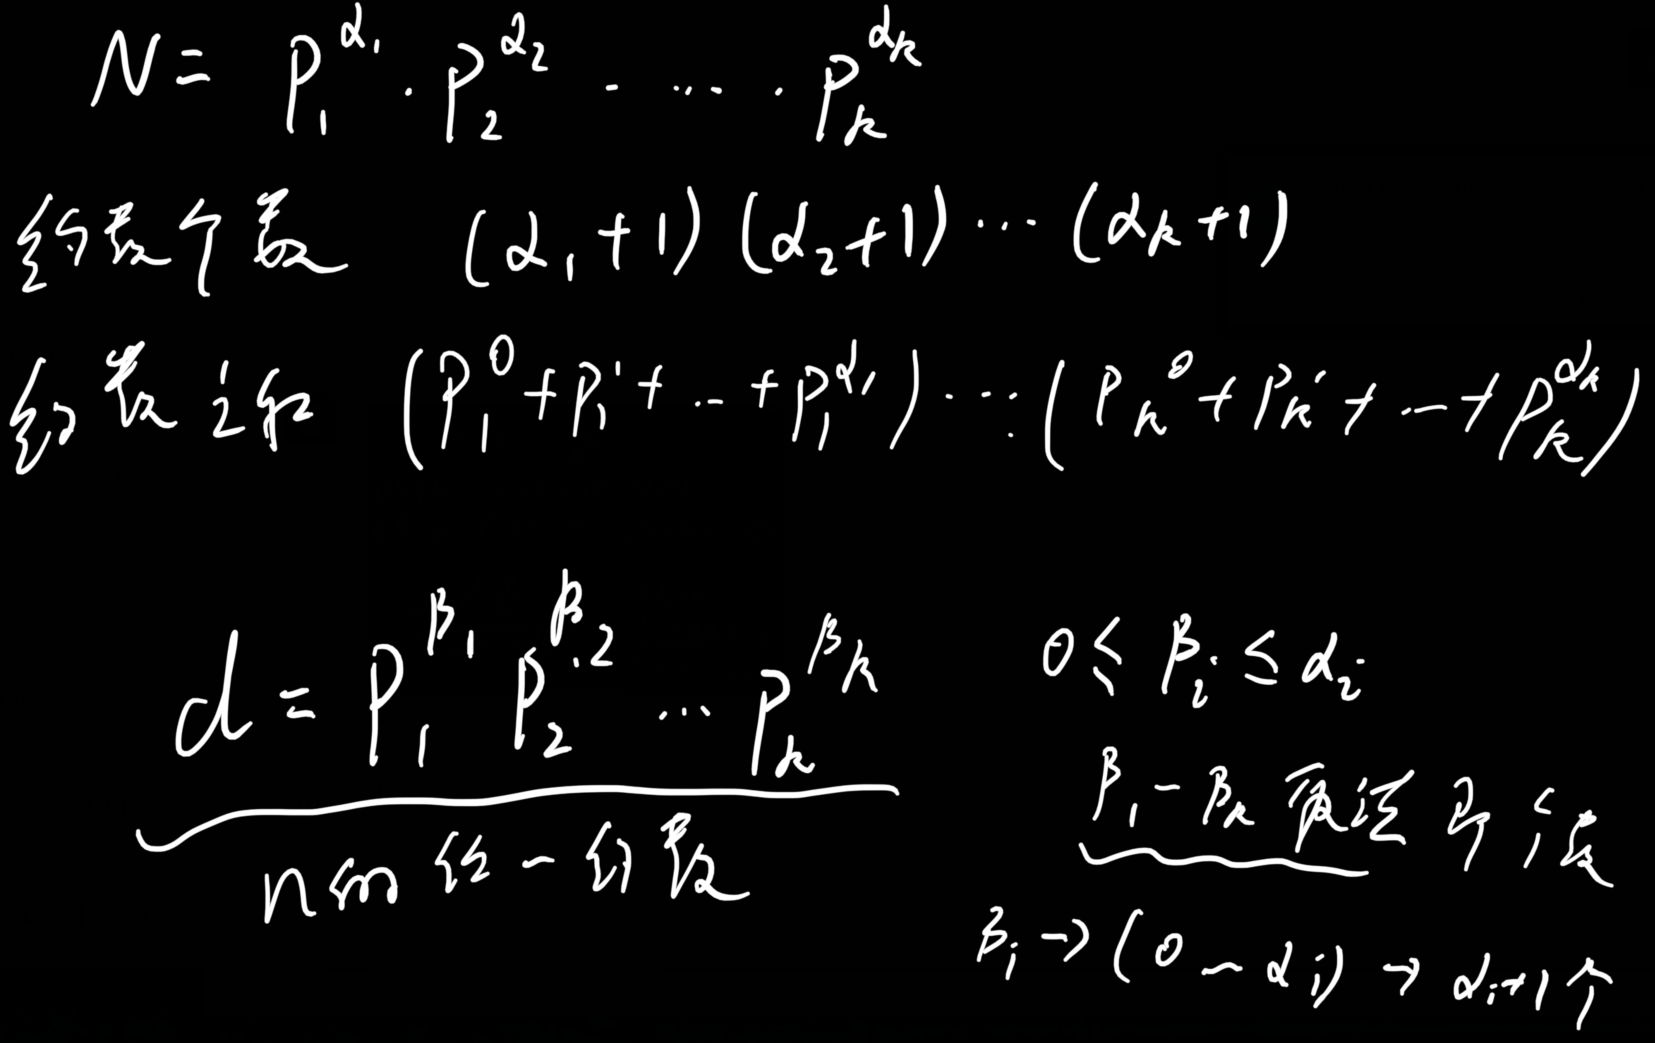 N = P₁^α₁ · P₂^α₂ · … · Pₖ^αₖ
约数个数 (α₁+1)(α₂+1)…(αₖ+1)
约数之和 (P₁⁰+P₁¹+…+P₁^α₁)…(Pₖ⁰+Pₖ¹+…+Pₖ^αₖ)
d = P₁^β₁ P₂^β₂ … Pₖ^βₖ
n的任一约数
0 ≤ βᵢ ≤ αᵢ
β₁-βₖ 选法 即个数
βᵢ → (0 ~ αᵢ) → αᵢ+1个